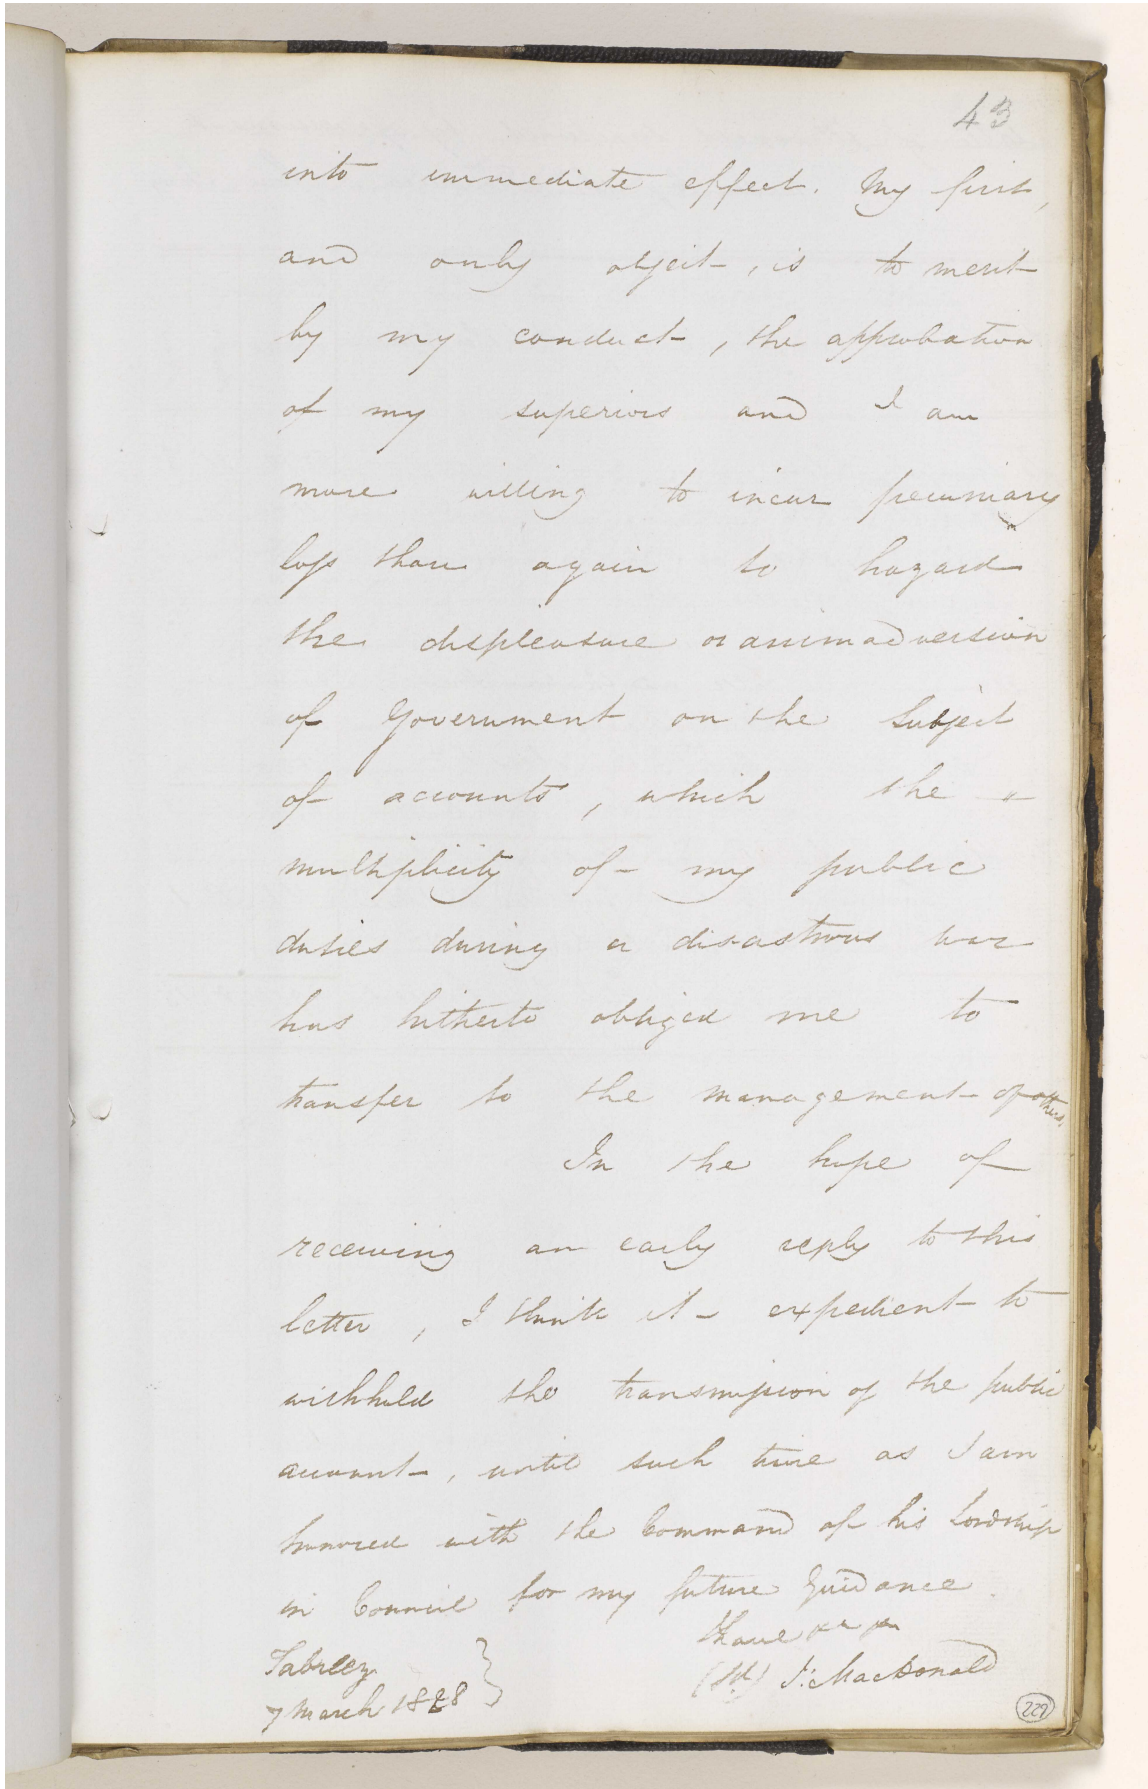 43
into immediate effect. My first,
and only object, is to merit
by my conduct, the approbation
of my superiors and I am
more willing to incur pecuniary
loss than again to hazard
the displeasure or animadversion
of Government on the Subject
of accounts, which the "
multiplicity of my public
duties during a disastrous war
has hitherto obliged me to
transfer to the management of others.
In the hope of
receiving an early reply to this
letter, I think it expedient to
withhold the transmission of the public
account, until such time as I am
honored with the Command of his Lordship
in Council for my future Guidance.
I have
(Sd) J: MacDonald
Tabreez
7 March 1828
229